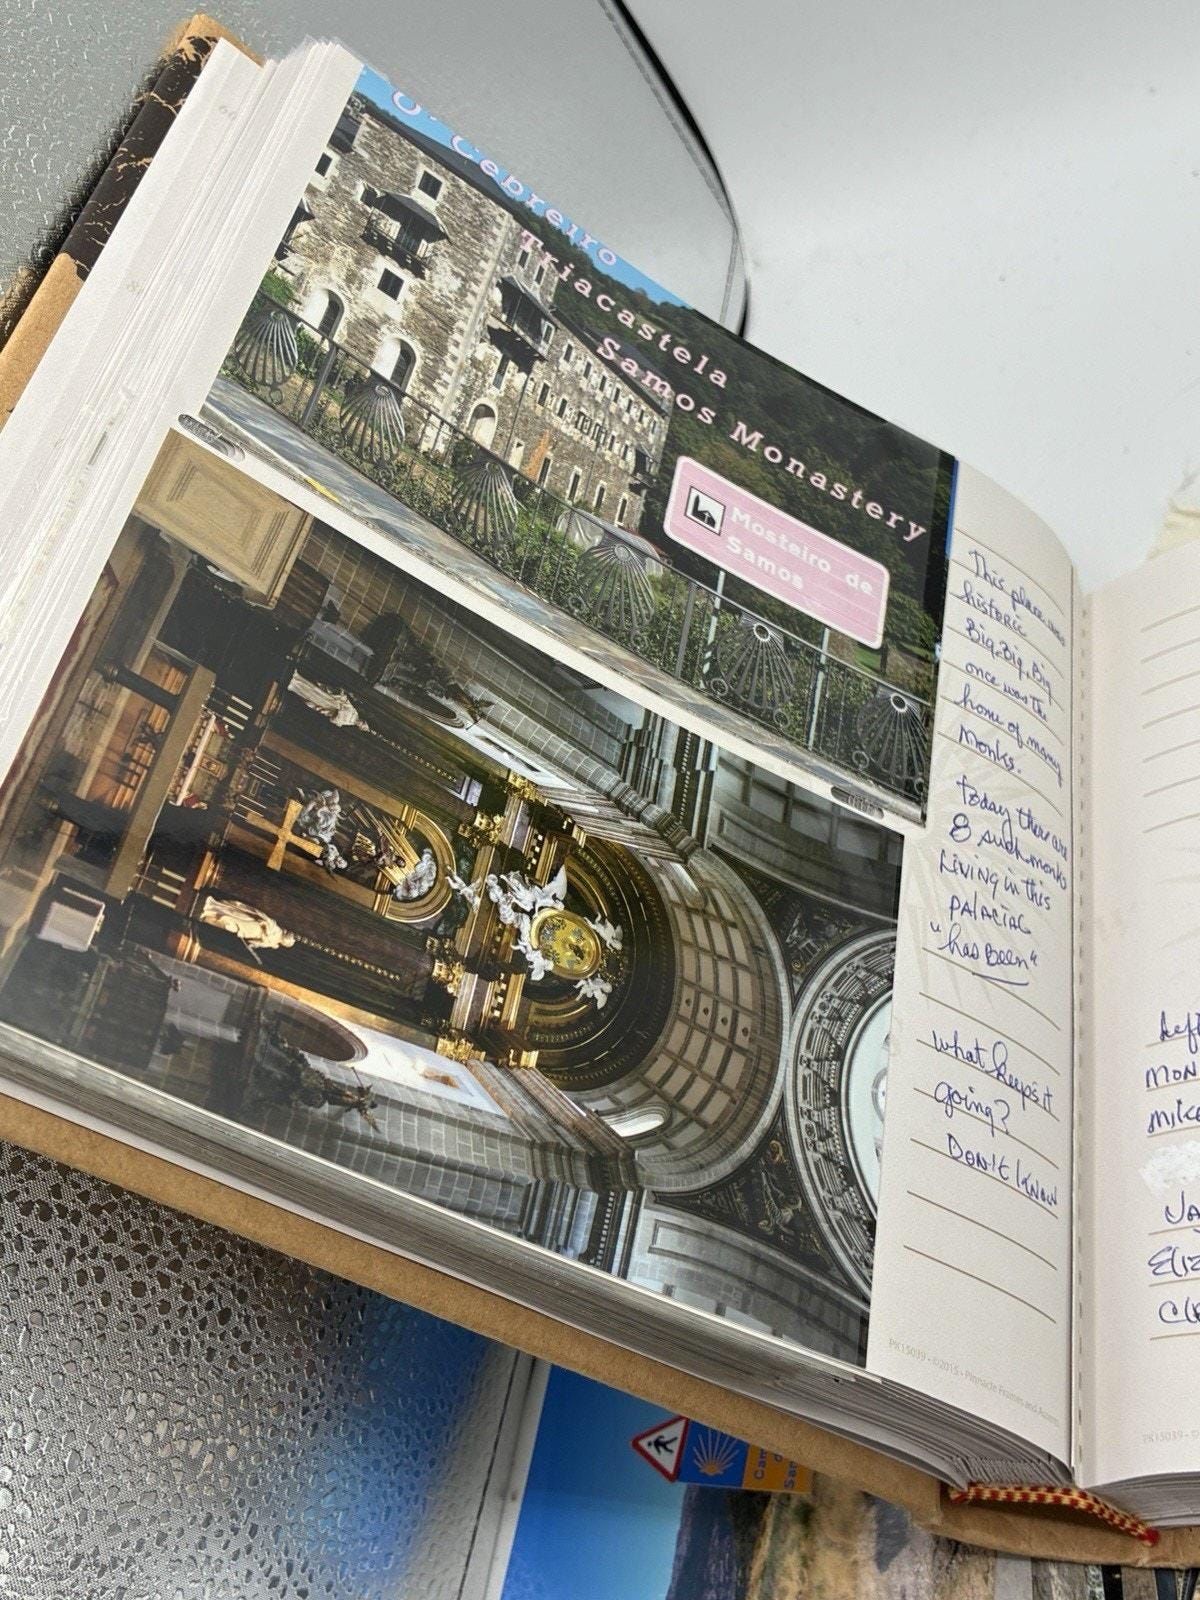 O'Cebreiro
Triacastela
Samos Monastery
Mosteiro de
Samos
This place was
historic
Big, Big, Big
once was the
home of many
Monks.
Today there are
8 such monks
LIVING in this
PALACIAL
"has Been"
what keeps it
going?
DON'T KNOW
PK15039 • ©2015 • Pinnacle Frames and Accents
MON
PK15039 • ©